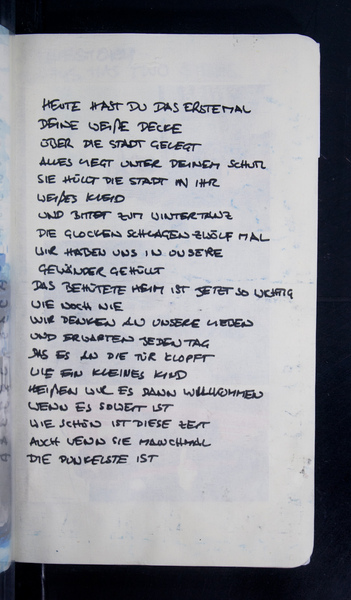 HEUTE HAST DU DAS ERSTEMAL
DEINE WEIßE DECKE
ÜBER DIE STADT GELEGT
ALLES LIEGT UNTER DEINEM SCHUTZ
SIE HÜLLT DIE STADT IN IHR
WEIßES KLEID
UND BITTET ZUM WINTERTANZ
DIE GLOCKEN SCHLAGEN ZWÖLF MAL
WIR HABEN UNS IN UNSERE
GEWÄNDER GEHÜLLT
DAS BEHÜTETE HEIM IST JETZT SO WICHTIG
WIE NOCH NIE
WIR DENKEN AN UNSERE LIEBEN
UND ERWARTEN JEDEN TAG
DAS ES AN DIE TÜR KLOPFT
WIE EIN KLEINES KIND
HEIßEN WIR ES DANN WILLKOMMEN
WENN ES SOWEIT IST
WIE SCHÖN IST DIESE ZEIT
AUCH WENN SIE MANCHMAL
DIE DUNKELSTE IST